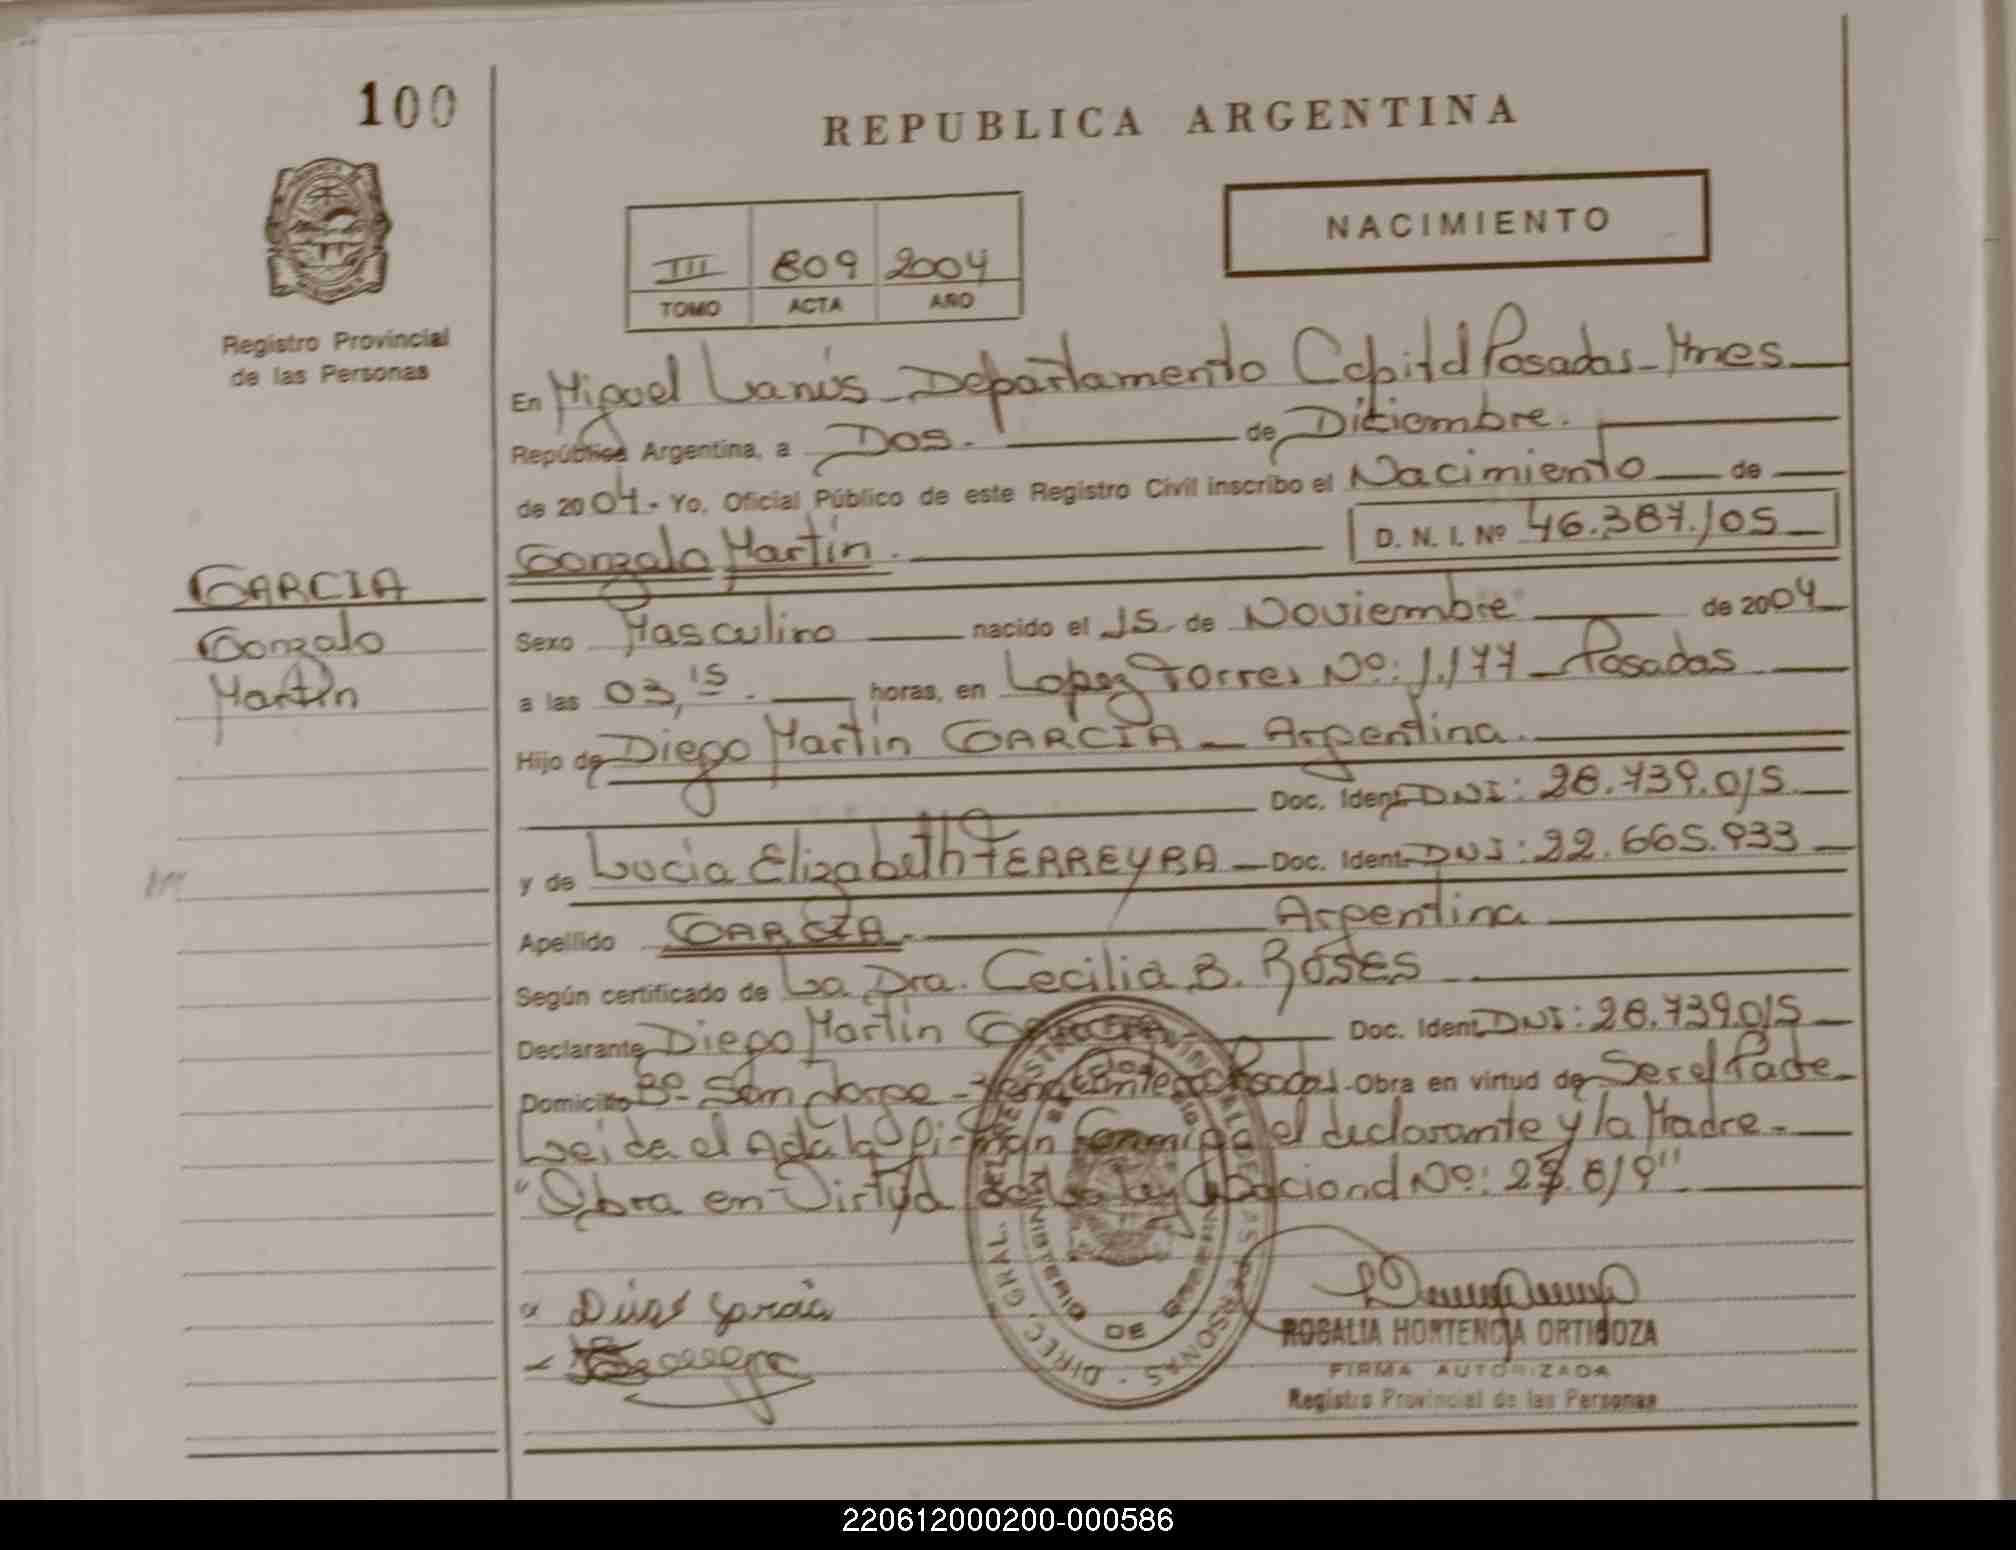 100
REPUBLICA ARGENTINA
NACIMIENTO
III 809 2004
TOMO ACTA AÑO
Registro Provincial
de las Personas
En Miguel Lanús - Departamento Capital Posadas - Mnes
República Argentina, a Dos. de Diciembre.
de 2004 - Yo, Oficial Público de este Registro Civil inscribo el Nacimiento de
Gonzalo Martín. D. N. I. Nº 46.387.105
GARCIA
Gonzalo
Martín
Sexo Masculino nacido el 15 de Noviembre de 2004
a las 03,15. horas, en Lopez Torres Nº: 1.177 - Posadas
Hijo de Diego Martín GARCIA - Argentina.
Doc. Ident. DNI: 28.739.015
y de Lucia Elizabeth FERREYRA - Doc. Ident. DNI: 22.665.933
Apellido GARCIA. Argentina
Según certificado de La Dra. Cecilia B. ROSES
Declarante Diego Martín GARCIA Doc. Ident. DNI: 28.739.015
Domicilio Bº San Jorge - Posadas - Obra en virtud de Ser el Padre
Leida el Acta la Firman Conmigo el declarante y la Madre -
"Obra en Virtud de la Ley Nacional Nº: 25.819"
Garcia
DIREC. GRAL. DE PERSONAS
MINISTERIO DE GOBIERNO
ROSALIA HORTENCIA ORTIGOZA
FIRMA AUTORIZADA
Registro Provincial de las Personas
220612000200-000586